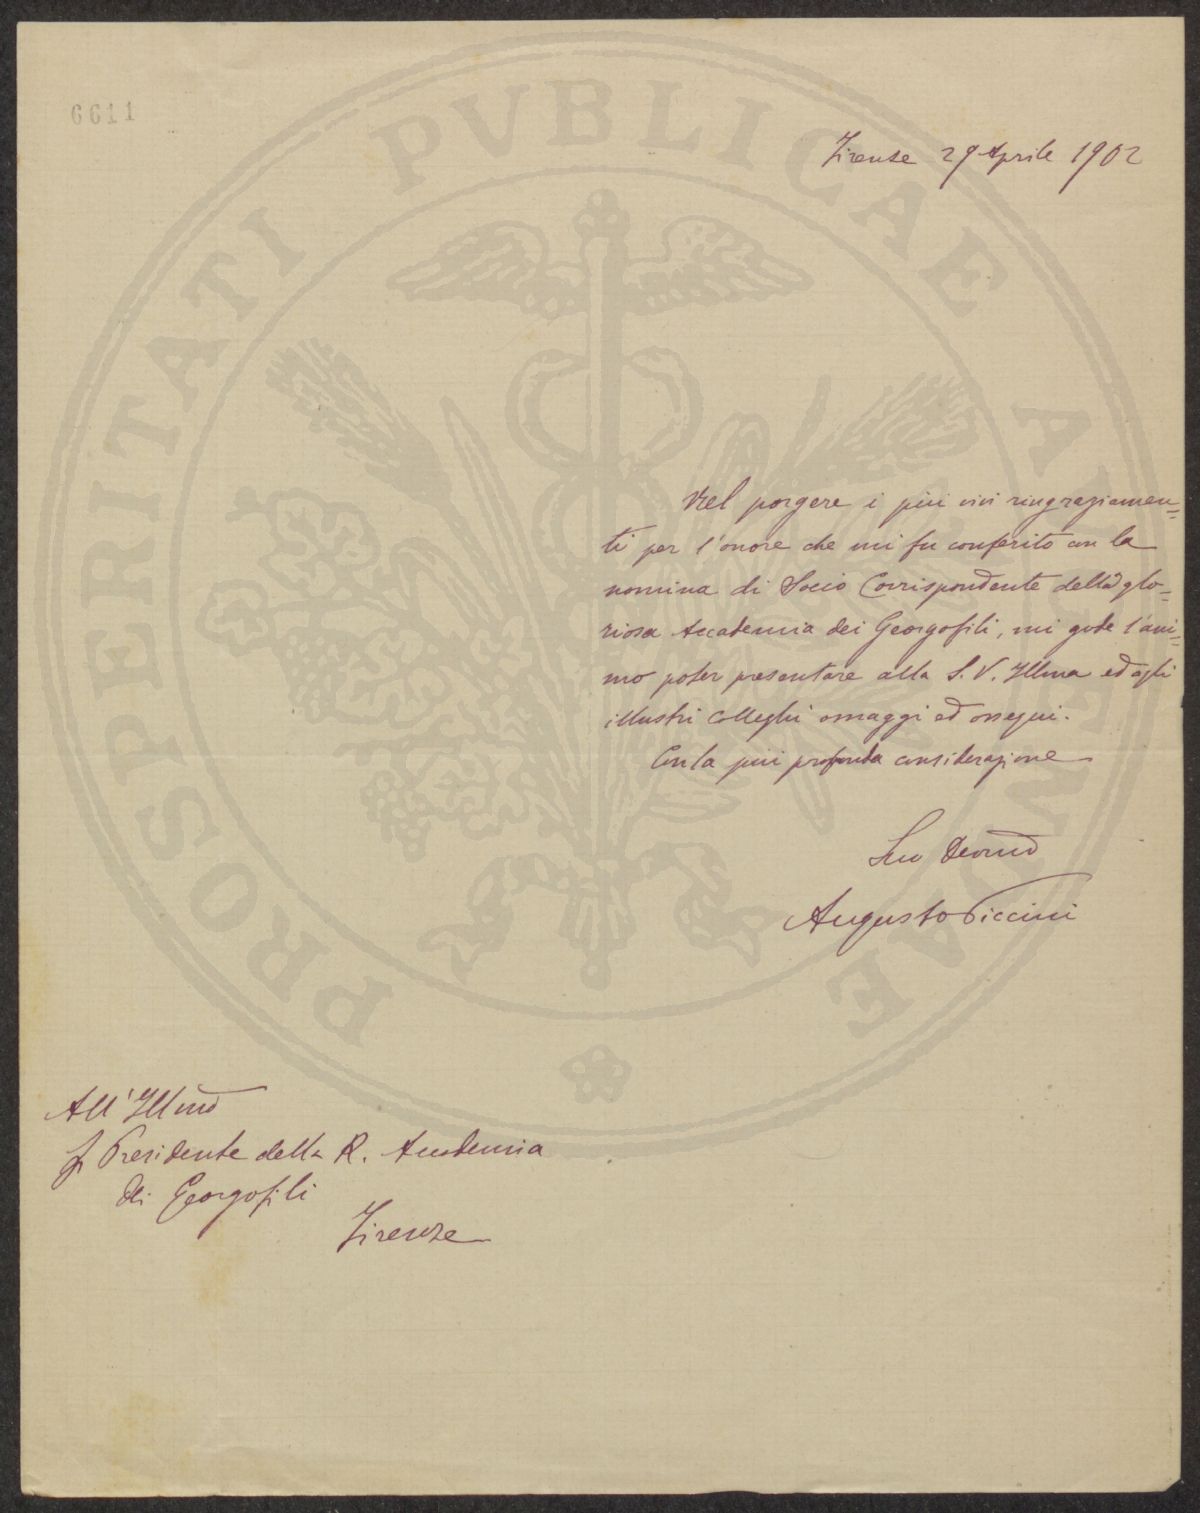 6611
PROSPERITATI PUBLICAE AUGENDAE
Firenze 29 Aprile 1902
Nel porgere i più vivi ringraziamen=
ti per l'onore che mi fu conferito con la
nomina di Socio Corrispondente della glo=
riosa Accademia dei Georgofili, mi gode l'ani=
mo poter presentare alla S. V. Illma ed agli
illustri Colleghi omaggi ed ossequi.
Con la più profonda considerazione
Suo Devmo
Augusto Piccini
All' Illmo
Presidente della R. Accademia
dei Georgofili
Firenze